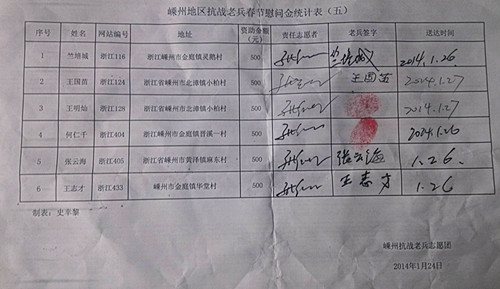 嵊州地区抗战老兵春节慰问金统计表（五）
序号 姓名 网站编号 地址 资助金额（元） 责任志愿者 老兵签字 送达时间
1 竺培城 浙江116 浙江嵊州市金庭镇灵鹅村 500 竺培城 2014.1.26
2 王国苗 浙江124 浙江省嵊州市北漳镇小柏村 500 王国苗 2014.1.27
3 王明灿 浙江128 浙江省嵊州市北漳镇小柏村 500 2014.1.27
4 何仁千 浙江404 浙江嵊州市金庭晋溪一村 500 2014.1.26
5 张云海 浙江405 浙江省嵊州市黄泽镇麻东村 500 张云海 1.26.
6 王志才 浙江433 嵊州市金庭镇华堂村 500 王志才 1.26
制表：史丰黎
嵊州抗战老兵志愿团
2014年1月24日